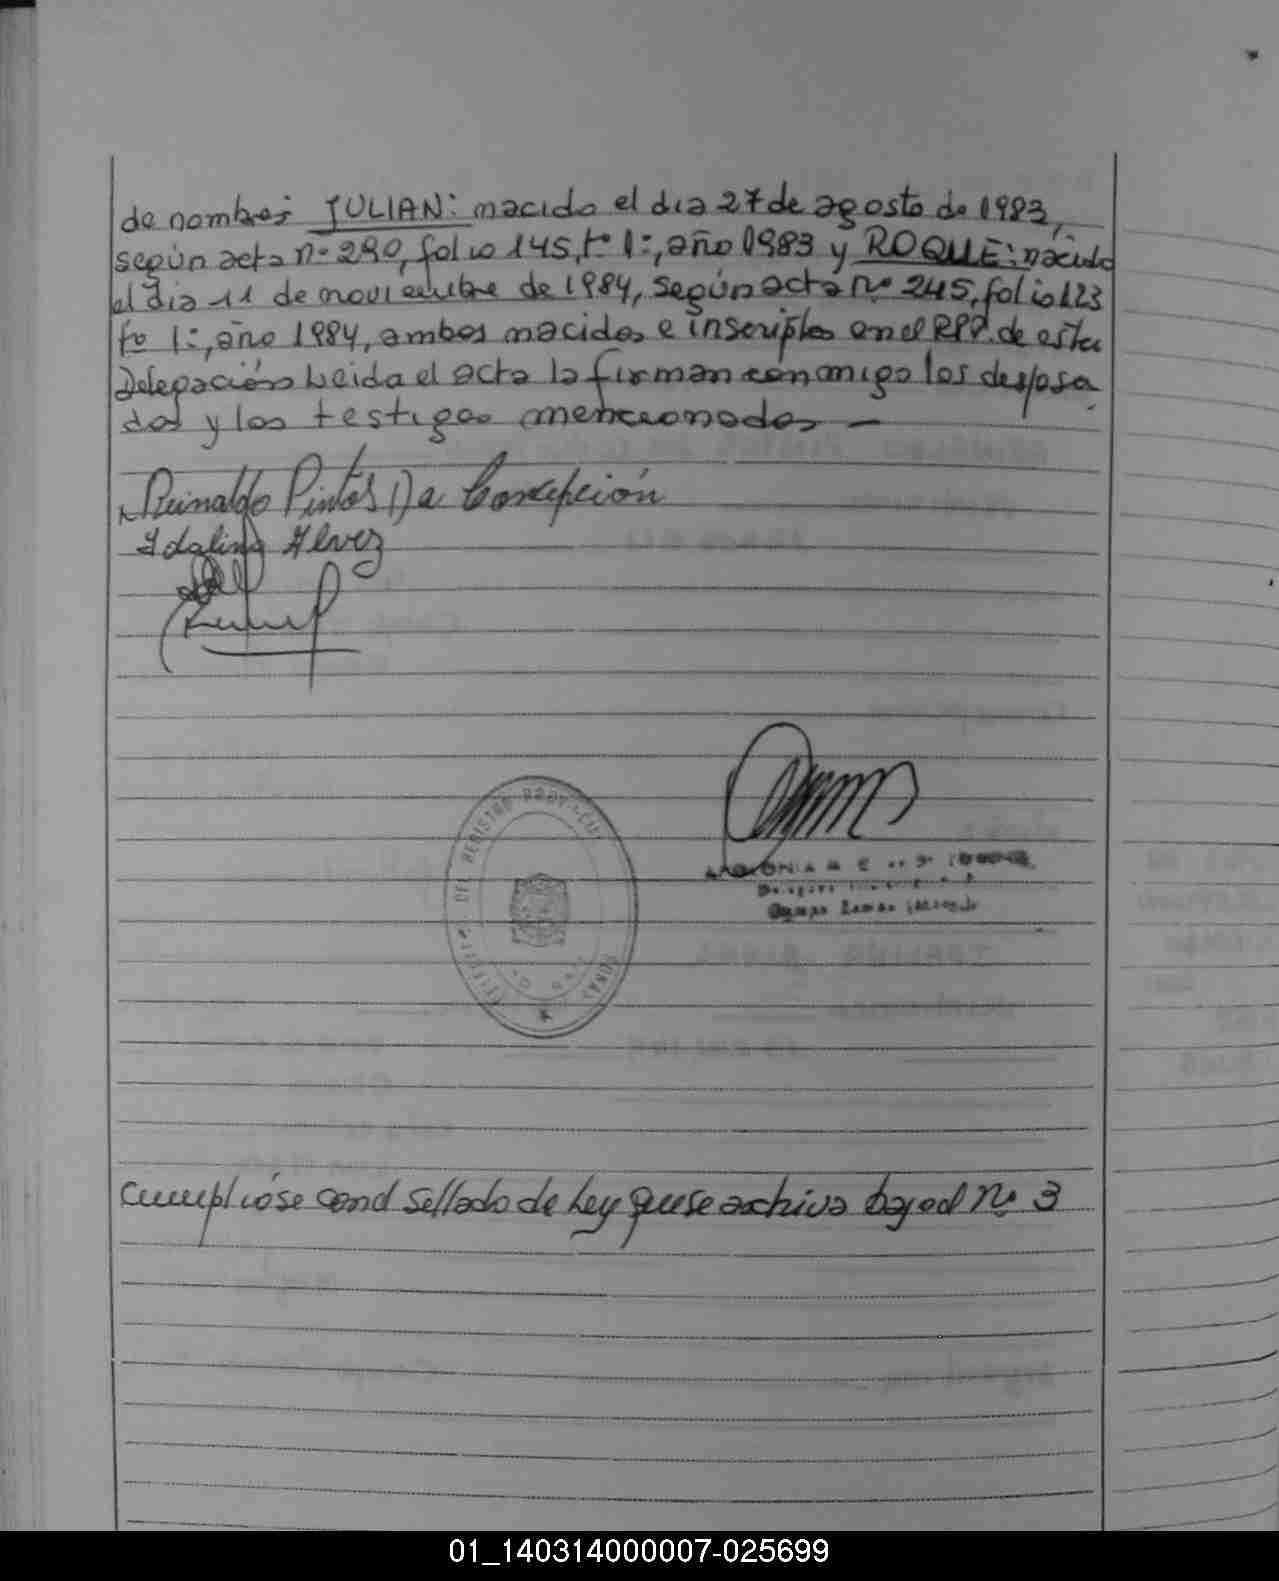 de nombres JULIAN: nacido el dia 27 de agosto de 1983,
según acta nº 290, folio 145, tº 1:, año 1983 y ROQUE: nacido
el dia 11 de noviembre de 1984, según acta nº 245, folio 123
tº 1:, año 1984, ambos nacidos e inscriptos en el RPP. de esta
Delegación Leida el acta la firman conmigo los desposa
dos y los testigos mencionados —
Reinaldo Pintos Da Concepción
Idalina Alvez
DEL REGISTRO PROVINCIAL
Campo Ramón
Cumplióse con el sellado de Ley que se archiva bajo el nº 3
01_140314000007-025699